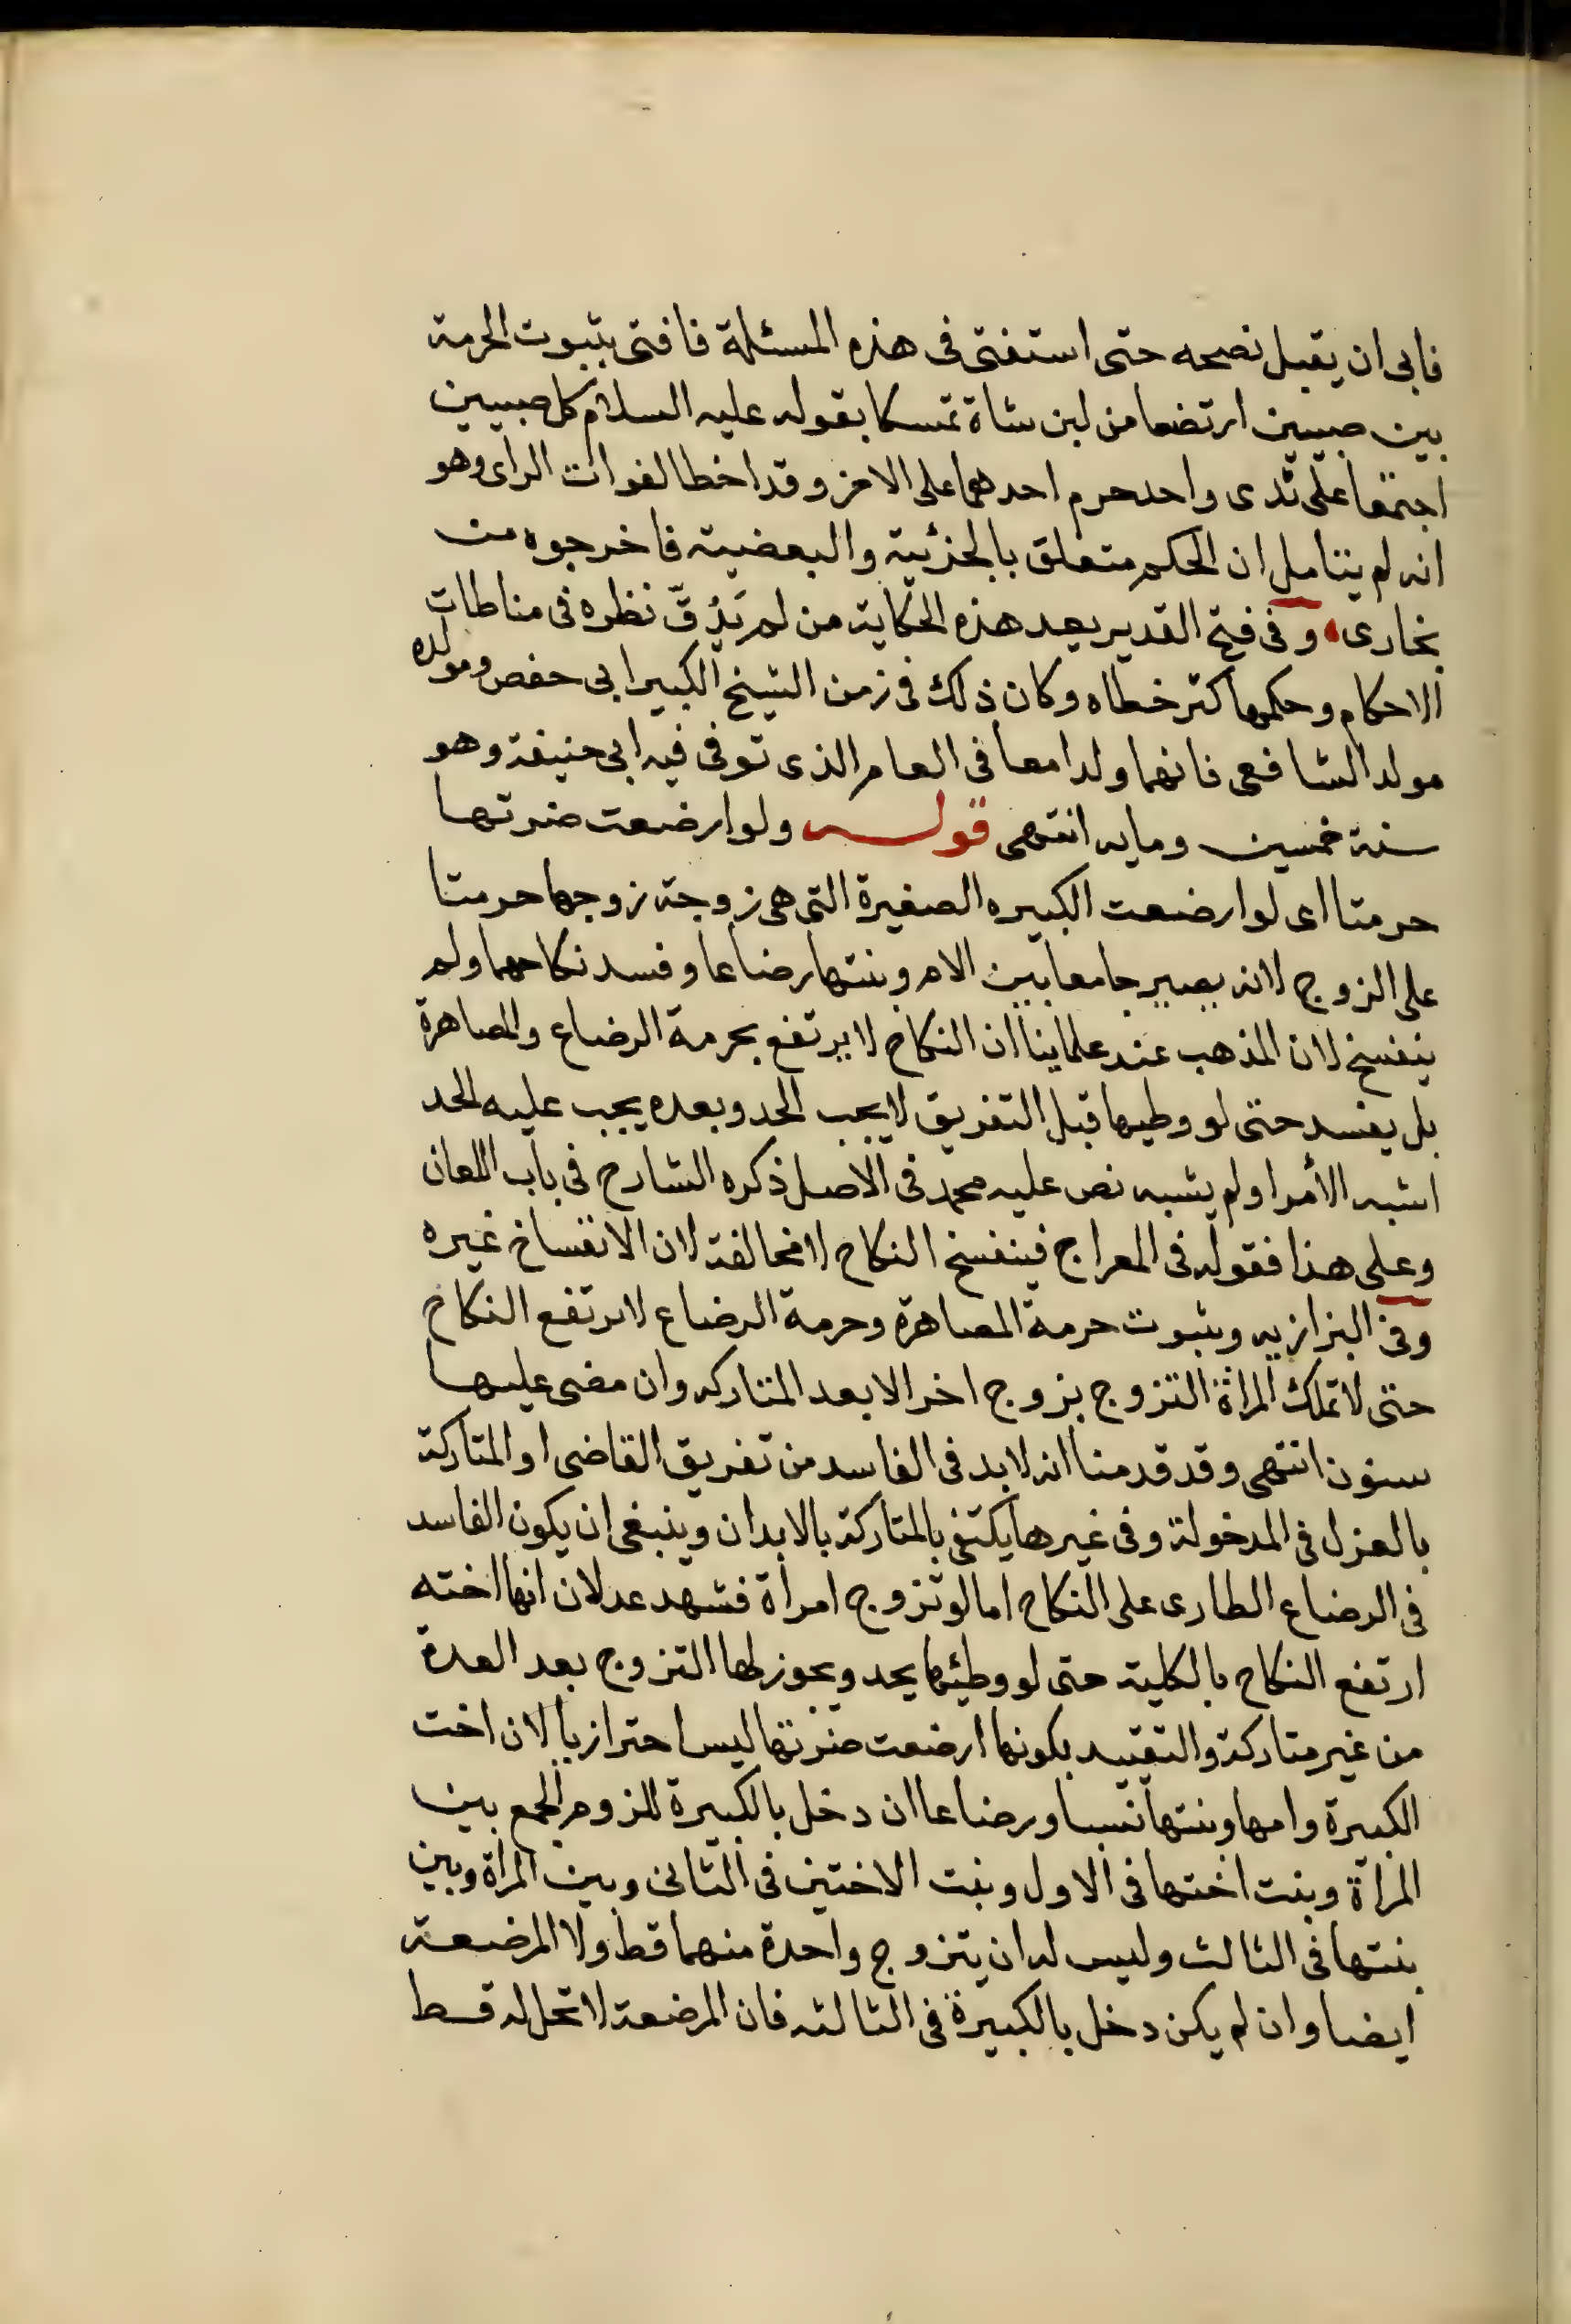 فابى ان يقبل نصحه حتى استفتى فى هذه المسئلة فافتى بثبوت الحرمة
بين صبيين ارتضعا من لبن شاة تمسكا بقوله عليه السلام كل صبيين
اجتمعا على ثدى واحد حرم احدهما على الاخر وقد اخطا لفوات الراى وهو
انه لم يتامل ان الحكم متعلق بالجزئية والبعضية فاخرجوه من
بخارى وفى فتح القدير بعد هذه الحكاية من لم يَدُقّ نظره فى مناطات
الاحكام وحكمها كثر خطاه وكان ذلك فى زمن الشيخ الكبير ابى حفص ومولده
مولد الشافعى فانهما ولدا معا فى العام الذى توفى فيه ابى حنيفة وهو
سنة خمسين ومايه انتهى قوله ولو ارضعت ضرتها
حرمتا اى لو ارضعت الكبيره الصغيرة التى هى زوجة زوجها حرمتا
على الزوج لانه يصير جامعا بين الام وبنتها رضاعا وفسد نكاحهما ولم
ينفسخ لان المذهب عند علماينا ان النكاح لا يرتفع بحرمة الرضاع والمصاهرة
بل يفسد حتى لو وطيها قبل التفريق لا يجب الحد وبعده يجب عليه الحد
اشبه الأمر او لم يشبه نص عليه محمد فى الاصل ذكره الشارح فى باب اللعان
وعلى هذا فقوله فى المعراج فينفسخ النكاح لا مخالفة لان الانفساخ غيره
وفى البزازيه وبثبوت حرمة المصاهرة وحرمة الرضاع لا يرتفع النكاح
حتى لا تملك المراة التزوج بزوج اخر الا بعد المتاركه وان مضى عليها
سنون انتهى وقد قدمنا انه لا بد فى الفاسد من تفريق القاضى او المتاركة
بالعزل فى المدخولة وفى غيرها يكتفى بالمتاركة بالابدان وينبغى ان يكون الفاسد
فى الرضاع الطارى على النكاح اما لو تزوج امراة فشهد عدلان انها اخته
ارتفع النكاح بالكلية حتى لو وطئها يحد ويجوز لها التزوج بعد العدة
من غير متاركة والتقييد بكونها ارضعت ضرتها ليس احترازيا لان اخت
الكبيرة وامها وبنتها نسبا ورضاعا ان دخل بالكبيرة للزوم الجمع بين
المراة وبنت اختها فى الاول وبنت الاختين فى الثانى وبين المراة وبين
بنتها فى الثالث وليس له ان يتزوج واحدة منهما قط ولا المرضعة
ايضا وان لم يكن دخل بالكبيرة فى الثالثه فان المرضعة لا تحل له قط